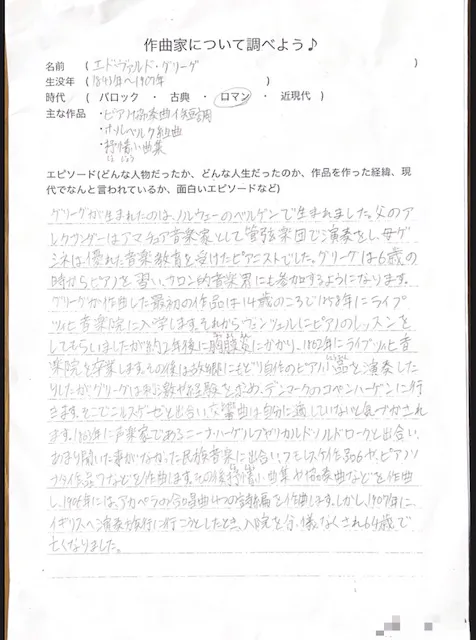 作曲家について調べよう♪
名前 ( エドヴァルド・グリーグ )
生没年 ( 1843年～1907年 )
時代 ( バロック ・ 古典 ・ ロマン ・ 近現代 )
主な作品 ・ピアノ協奏曲イ短調
・ホルベルク組曲
・抒情小曲集
じょ じょう
エピソード(どんな人物だったか、どんな人生だったのか、作品を作った経緯、現
代でなんと言われているか、面白いエピソードなど)
グリーグが生まれたのは、ノルウェーのベルゲンで生まれました。父のア
レクサンダーはアマチュア音楽家として管弦楽団で演奏をし、母ゲ
シネは優れた音楽教育を受けたピアニストでした。グリーグは6歳の
時からピアノを習い、サロン的音楽界にも参加するようになります。
グリーグが作曲した最初の作品は14歳のころで1858年にライプ
ツィヒ音楽院に入学します。それからヴェンツェルにピアノのレッスンを
してもらいましたが約2年後に胸膜炎にかかり、1862年にライプツィヒ音
楽院を卒業します。その後は故郷にもどり自作のピアノ小品を演奏した
りしたがグリーグは刺激や経験を求め、デンマークのコペンハーゲンに行
きます。そこでニルスゲーゼと出会い交響曲は自分に適していないと気づかされ
ます。年に声楽家であるニーナ・ハーゲルプやリカルドノルドロークと出会い、
あまり聞いた事がなかった民族音楽に出会いフモレスケ作品6や、ピアノソ
ナタ作品7などを作曲します。その後抒情小曲集や協奏曲などを作曲
し、1906年には、アカペラの合唱曲4つの詩篇を作曲します。しかし、1907年に
イギリスへ演奏旅行に行こうとしたとき、入院を余儀なくされ64歳で
亡くなりました。